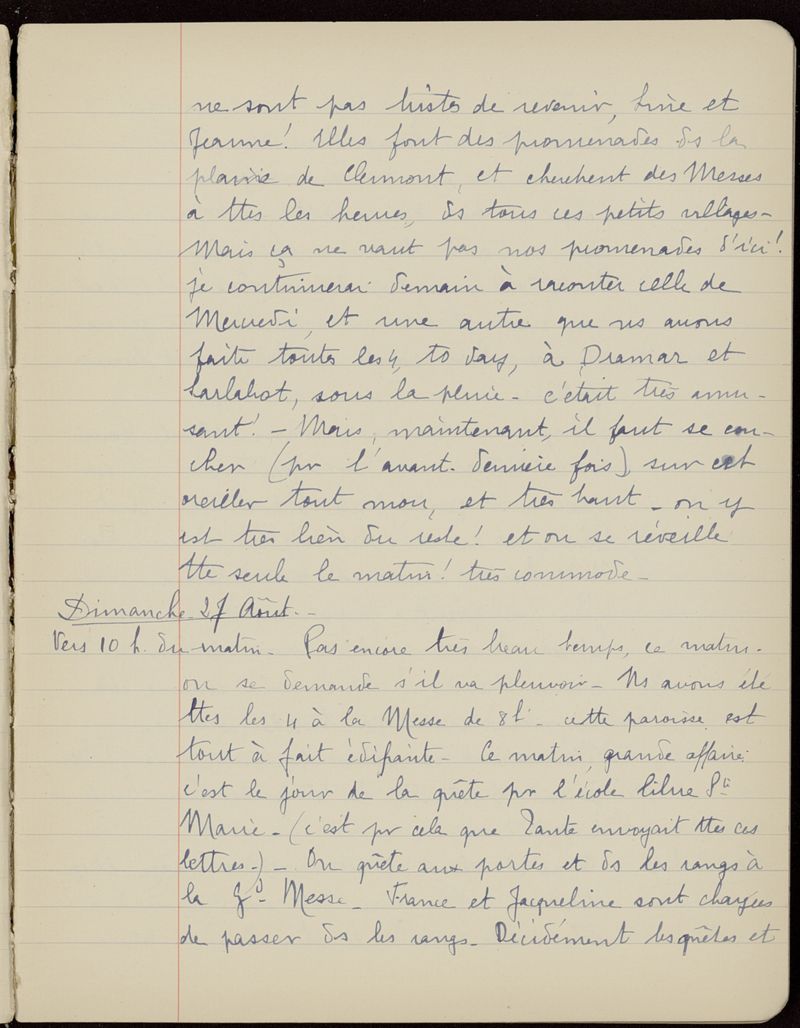 ne sont pas tristes de revenir, Line et
Jeanne! Elles font des promenades ds la
plaine de Clermont, et cherchent des Messes
à ttes les heures, ds tous ces petits villages -
Mais ça ne vaut pas nos promenades d'ici!
je continuerai demain à raconter celle de
Mercredi, et une autre que ns avons
faite toutes les 4, to day, à Dramar et
Sarlabot, sous la pluie - c'était très amu-
sant! - Mais, maintenant, il faut se cou-
cher (pr l'avant-dernière fois) sur cet
oreiller tout mou, et très haut - on y
est très bien du reste! et on se réveille
tte seule le matin! très commode -
Dimanche 27 Août. -
Vers 10 h. du matin - Pas encore très beau temps, ce matin.
on se demande s'il va pleuvoir - Ns avons été
ttes les 4 à la Messe de 8h - cette paroisse est
tout à fait édifiante - Ce matin, grande affaire,
c'est le jour de la quête pr l'école libre Ste
Marie - (c'est pr cela que Tante envoyait ttes ces
lettres -) - On quête aux portes et ds les rangs à
la Gd- Messe - France et Jacqueline sont chargées
de passer ds les rangs - Décidément les quêtes et